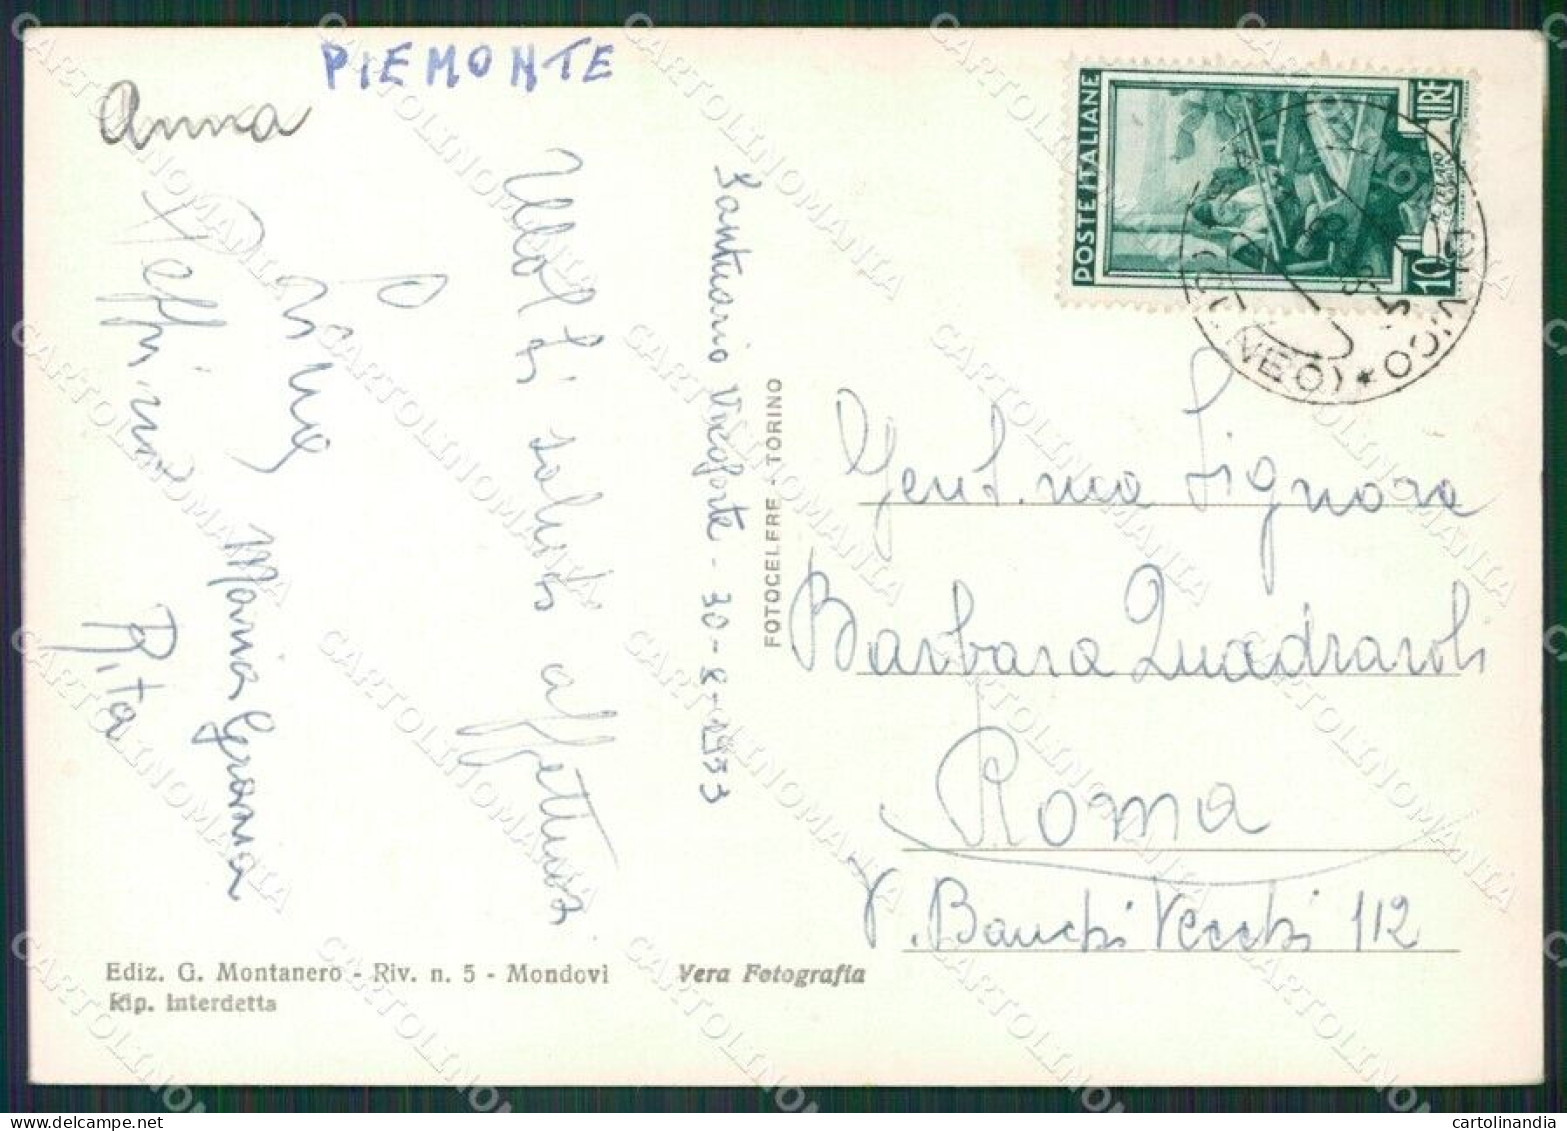 PIEMONTE
Anna
Santuario Vicoforte - 30-8-1953
saluti affettuosi
Maria Grazia
Rita
FOTOCELERE - TORINO
POSTE ITALIANE
LIRE
10
Gent.ma Signora
Barbara Quadraroli
Roma
V. Banchi Vecchi 112
Ediz. G. Montanero - Riv. n. 5 - Mondovì
Rip. Interdetta
Vera Fotografia
CARTOLINOMANIA
cartolinandia